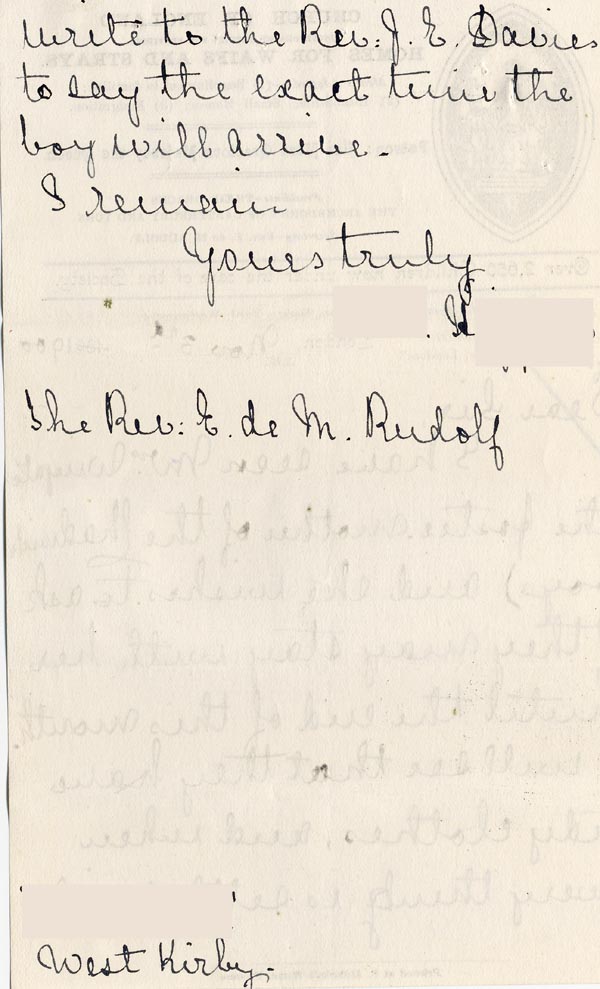 write to the Rev: J. E. Davies
to say the exact time the
boy will arrive.
I remain
Yours truly
The Rev: E. de M. Rudolf
West Kirby.